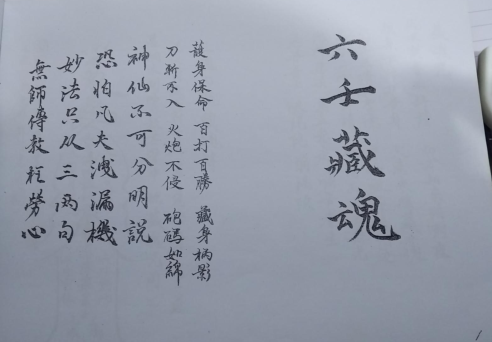 六壬藏魂
護身保命 百打百勝 藏身柄影
刀斬不入 火炮不侵 砲碼如綿
神仙不可分明說
恐怕凡夫洩漏機
妙法只从三兩句
無師傳教枉勞心